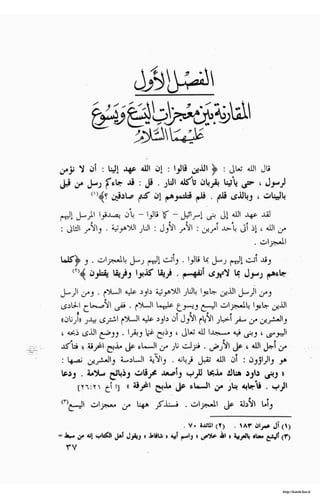 الفصل الأول
المقارنة بين معجزات اليسع ويسوع
عليهما السلام
قال الله تعالى : ﴿ الذين قالوا : إن الله عهد إلينا : أن لا نؤمن
لرسول ، حتى يأتينا بقربان تأكله النار . قل : قد جاءكم رسل من قبلى
بالبينات ، وبالذى قلتم . فلم قتلتموهم إن كنتم صادقين ؟﴾(١)
لقد عهد الله إلى بنى إسرائيل – كما قالوا – بأن يصدقوا المرسل إليهم
من الله ، إذ أتى بأحد أمرين : الأمر الأول : النار اللاهوتية . والأمر الثانى :
المعجزات .
وقد أتت إليهم رسل بما قالوا . وأتت إليهم رسل بالمعجزات . و ﴿كلما
جاءهم رسول بما لا تهوى أنفسهم . فريقا كذبوا وفريقا يقتلون ﴾(٢)
ومن الرسل الذين جاءوا بالنار اللاهوتية داود عليه السلام . ومن الرسل
الذين جاءوا بالمعجزات اليسع ويسوع عليهما السلام . ففى الأصحاح الحادى
والعشرين من سفر أخبار الأيام الأول أن داود عليه السلام اشترى بيدر «أرنان»
اليبوسى ، وبنى فيه مسجدا لله تعالى ، وذبح غنما وبقرا . ووضع الذى ذبحه ،
من أجل الله ، على الأرض . فنزلت نار من السماء على مذبح المحرقة ، فتأكد
هو والراؤون : أن الله تقبل قربانه . والآية السادسة والعشرين نصها :
« وبنى داود هناك مذبحا للرب وأصعد محرقات وذبائح سلامة . ودعا
الرب . فأجابه بنار من السماء على مذبح المحرقة » [١ أخ ٢١:٢٦]
وأما الأدلة على المعجزات . فسنذكر ههنا من معجزات اليسع(٣)
(١) آل عمران ١٨٣ . (٢) المائدة ٧٠ .
(٣) أليشع معناه بالعربية « الله خلاص » واسم أبيه « شافاط » ويقول أهل الكتاب إنه من سبط =
٣٧